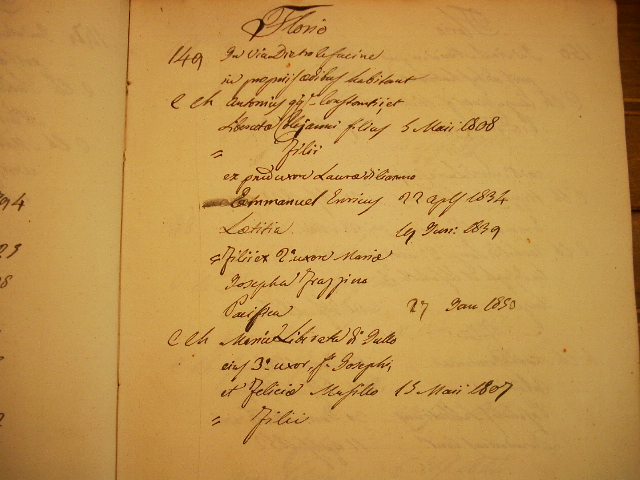 Florio
149 In Via Dietro le fucine
in propriis ædibus habitant
C Ch Antonius qm Constantii, et
Liberatæ filius 5 Maii 1808
" Filii
ex pma uxore Laura
Emmanuel Enricus 22 aplis 1834
Lætitia 19 Juni: 1839
" Filii ex 2a uxore Maria
Josepha Frazzino
Pacifica 27 Jan 1850
C Ch Maria Liberata di Gallo
eius 3a uxor, fa Josephi,
et Feliciæ Musillo 15 Maii 1807
" Filii
794
23
8